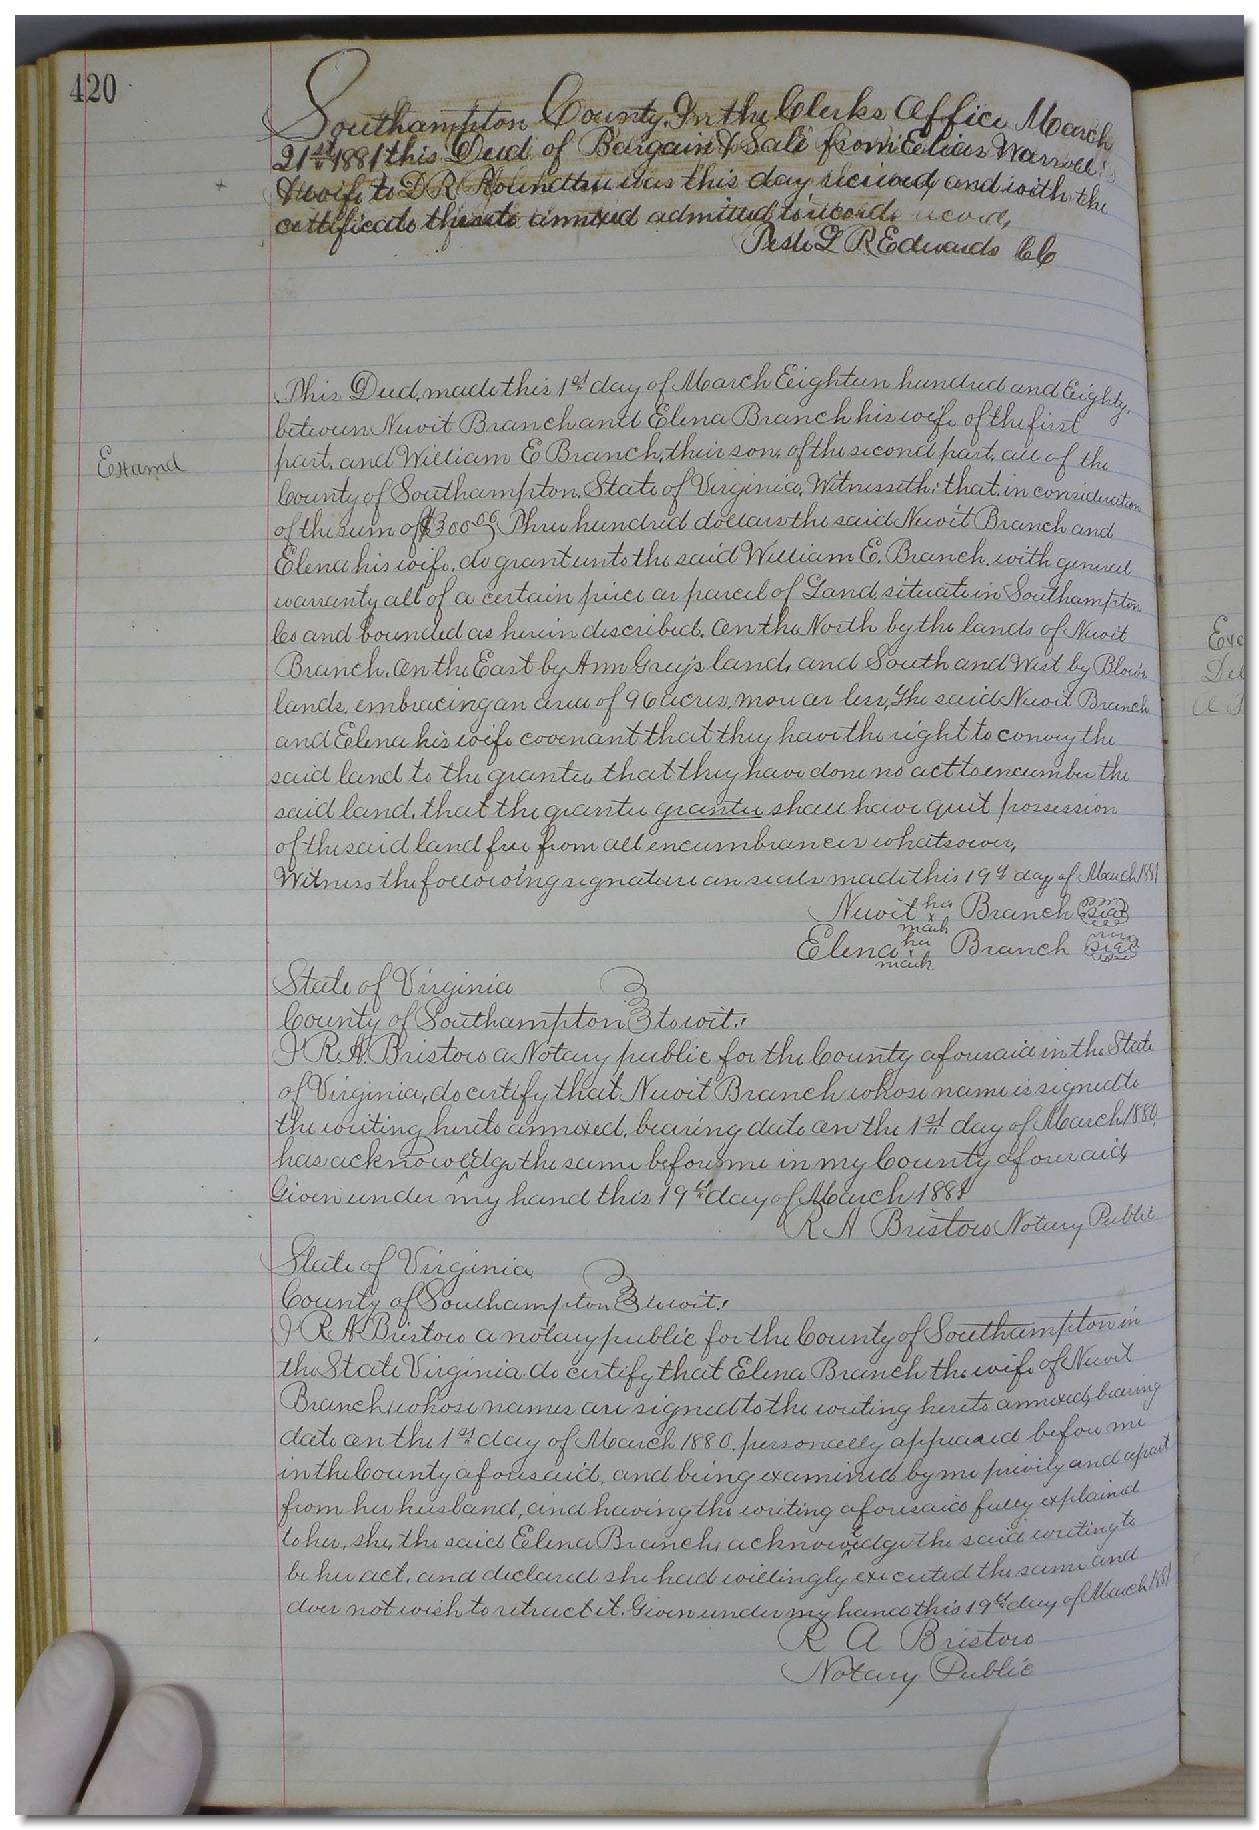 420
Southampton County. In the Clerks Office March
21st 1881 this Deed of Bargain & Sale from Elias Worrell
& wife to D R was this day received and with the
certificate thereto annexed admitted to record record,
Teste L R Edwards CC
This Deed, made this 1st day of March Eighteen hundred and Eighty,
between Newit Branch and Elena Branch his wife of the first
Examd
part, and William E Branch, their son, of the second part, all of the
County of Southampton, State of Virginia, Witnesseth: that, in consideration
of the sum of $300 00 Three hundred dollars the said Newit Branch and
Elena his wife, do grant unto the said William E. Branch, with general
warranty all of a certain piece or parcel of Land, situate in Southampton
Co and bounded as herein described. On the North by the lands of Newit
Branch. On the East by Ann Grey's land, and South and West by Blow's
lands, embracing an area of 96 acres, more or less, The said Newit Branch
and Elena his wife covenant that they have the right to convey the
said land to the grantee, that they have done no act to encumber the
said land, that the grantee grantee shall have quit possession
of the said land free from all encumbrances whatsoever,
Witness the following signature an seals made this 19th day of March 1881
Newit his x mark Branch Seal
Elena her x mark Branch Seal
State of Virginia
County of Southampton to wit:
I R. A. Bristow a Notary public for the County aforesaid in the State
of Virginia, do certify that Newit Branch whose name is signed to
the writing hereto annexed, bearing date on the 1st day of March 1880,
has acknowledge the same before me in my County aforesaid
Given under my hand this 19th day of March 1881
R A Bristow Notary Public
State of Virginia
County of Southampton to wit:
I R. A. Bristow a notary public for the County of Southampton in
the State Virginia do certify that Elena Branch the wife of Newit
Branch whose names are signed to the writing hereto annexed, bearing
date on the 1st day of March 1880. personally appeared before me
in the County aforesaid, and being examined by me privily and apart
from her husband, and having the writing aforesaid fully explained
to her, she, the said Elena Branch acknowledge the said writing to
be her act, and declared she had willingly executed the same and
does not wish to retract it. Given under my hand this 19th day of March 1881
R A Bristow
Notary Public